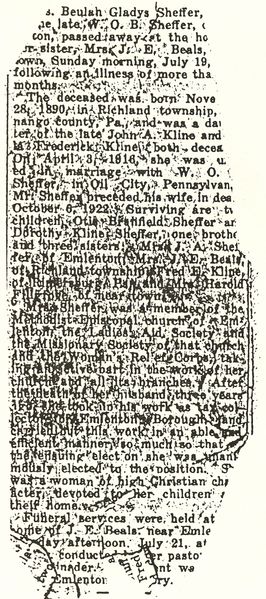 s. Beulah Gladys Sheffer,
he late W. O. B. Sheffer,
ton, passed away at the ho
er sister, Mrs. J. E. Beals,
town, Sunday morning, July 19,
following an illness of more tha
months.
The deceased was born Nove
28, 1890, in Richland township,
nango county, Pa., and was a da
ter of the late John A. Kline and
M Frederick Kline, both decea
On April 3, 1916, she was u
ed in marriage with W. O.
Sheffer, in Oil City, Pennsylvan
Mr. Sheffer preceded his wife in dea
October 6, 1922. Surviving are t
children, Otis Branfield Sheffer an
Dorothy Kline Sheffer, one brothe
and three sisters: Mrs. J. A. Shef
fer, of Emlenton; Mrs. J. E. Beals
of Richland township; Fred E. Kline,
of Pa., and Mrs. Harold
of near town.
Mrs. Sheffer was a member of the
Methodist Episcopal church of Em-
lenton, the Ladies Aid Society and
the Missionary Society of that church
and the Woman's Relief Corps, tak-
ing an active part in the work of her
church and all its branches. After
the death of her husband three years
ago she took up his work as tax col-
lector of Emlenton Borough, and
carried out this work in an able and
efficient manner, so much so that
the ensuing election she was unani
mously elected to the position.
was a woman of high Christian cha
acter, devoted to her children
their home.
Funeral services were held at
home of J. E. Beals, near Emle
day afternoon, July 21, at
conducted her pasto
under nt w
Emlenton ry.